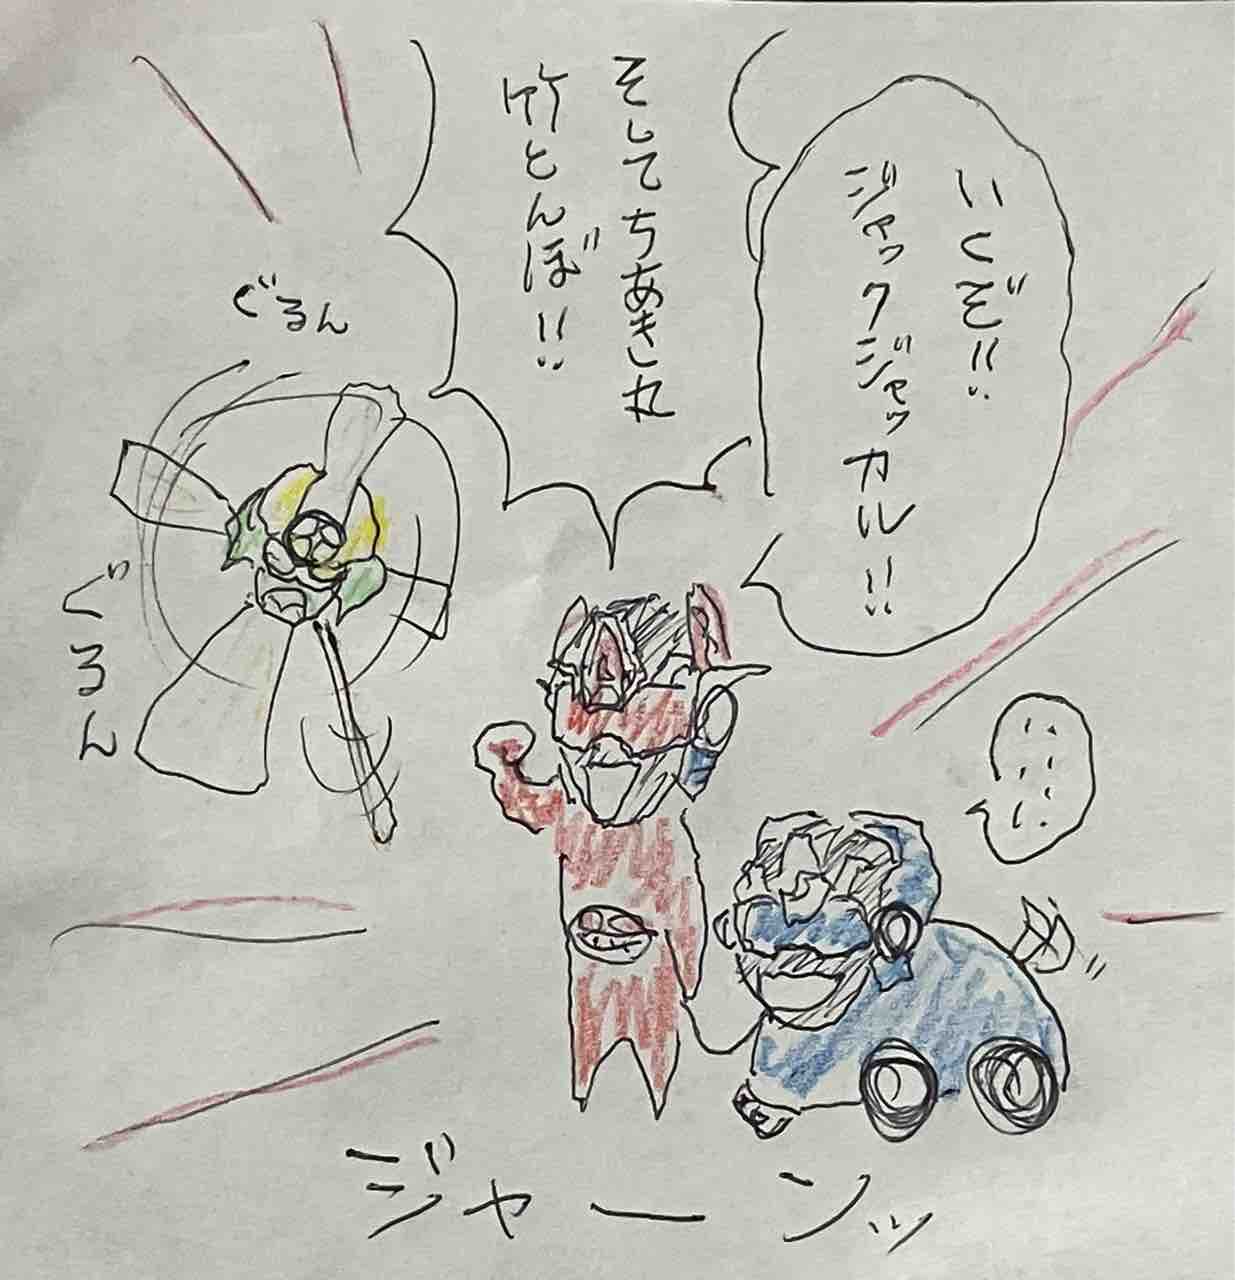 いくぞ!!
ジャックジャッカル!!
そしてちあき丸
竹とんぼ!!
ぐるん
ぐるん
ジャーンッ